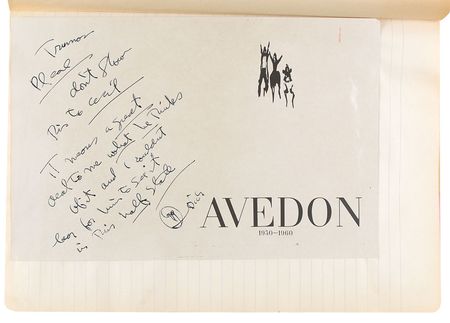 Truman
Please
don't show
this to Cecil
It means a great
deal to me what he thinks
of it and I couldn't
bear for him to see it
in this half state
Dick
AVEDON
1950—1960